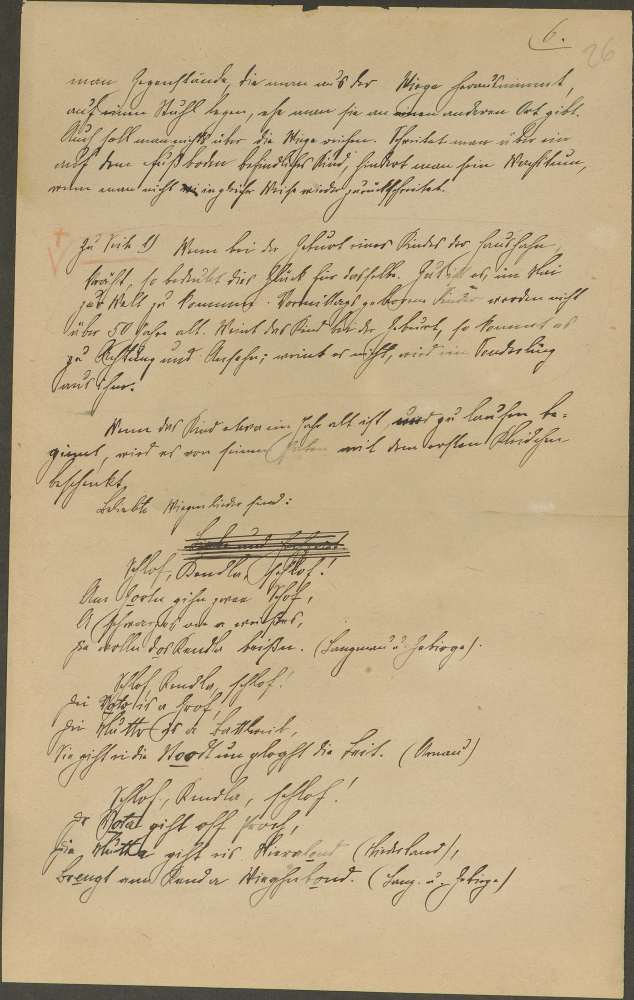 6.
26
man Gegenstände, die man aus der Wiege herausnimmt,
auf einen Stuhl legen, ehe man sie an einen anderen Ort gibt.
Auch soll man nichts über die Wiege reichen. Schreitet man über ein
auf dem Fußboden befindliches Kind, hindert man sein Wachstum,
wenn man nicht in gleicher Weise wieder zurückschreitet.
Zu Seite 1) Wenn bei der Geburt eines Kindes der Haushahn
kräht, so bedeutet dies Glück für dasselbe. es im Mai
zur Welt zu kommen. Vormittags geborene Kinder werden nicht
über 50 Jahre alt. Weint das Kind bei der Geburt, so kommt es
zu Achtung und Ansehn; weint es nicht, wird ein Sonderling
aus ihm.
Wenn das Kind etwa ein Jahr alt ist, und zu laufen be-
ginnt, wird es von seinen Paten mit dem ersten Kleidchen
beschenkt.
Beliebte Wiegenlieder sind:
Schlof, Kendla, schlof!
Am Goortn gihn zwee Schof,
A schwarzes on a weißes,
die wolln dos Kendla beißn. (Langenau u. Gebirge).
Schlof, Kendla, schlof!
Dei Voto is a Grof,
Dei Mutto is a Battlmeid,
Sie giht ei die Stoodt un ploght die Leit. (Arnau)
Schlof, Kendla, schlof!
Dr Vota giht off Hoch,
Die Mutta giht eis Niederlond (Niederland),
Brengt am Kendla Wieghnbond. (Lang. u. Gebirge)